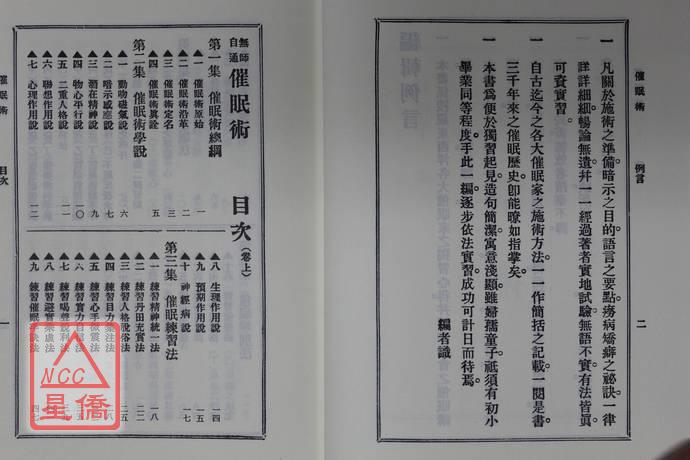 催眠術
例言
二
一 凡關於施術之準備暗示之目的語言之要點療病矯癖之祕訣一律
詳詳細細暢論無遺幷一一經過著者實地試驗無語不實有法皆眞
可資實習。
一 自古迄今之各大催眠家之施術方法一一作簡括之記載一閱是書
三千年來之催眠歷史卽能瞭如指掌矣。
一 本書爲便於獨習起見造句簡潔寓意淺顯雖婦孺童子祇須有初小
畢業同等程度手此一編逐步依法實習成功可計日而待焉。
編者識
無師自通 催眠術 目次(卷上)
第一集 催眠術總綱
▲一 催眠術原始 一
▲二 催眠術沿革 二
▲三 催眠術定名 三
▲四 催眠術眞詮 五
第二集 催眠術學說
▲一 動物磁氣說 六
▲二 暗示感應說 七
▲三 潛在精神說 九
▲四 物心平行說 一〇
▲五 二重人格說 一一
▲六 聯想作用說
▲七 心理作用說 一二
▲八 生理作用說 一四
▲九 預期作用說 一五
▲十 神經病說 一七
第三集 催眠練習法
▲一 練習精神統一法 一八
▲二 練習丹田充實法 二二
▲三 練習人格脫俗法 二五
▲四 練習目力集注法
▲五 練習心手微震法
▲六 練習實力自信法
▲七 練習喝聲銳利法
▲八 練習避實棄虛法
▲九 練習催眠
催眠術
目次
一
NCC
星僑